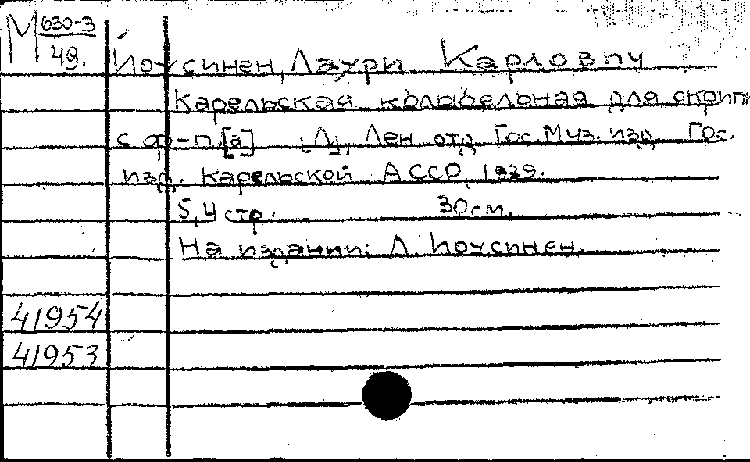 М 630-3
49.
Йоусинен, Лаури Карлович
Карельская колыбельная для скрип
с ф-п.[а] Л., Лен. отд. Гос. Муз. изд. Гос.
изд. Карельской АССР, 1939.
5,4 стр. 30 см.
На издании: Л. Йоусинен.
41954
41953